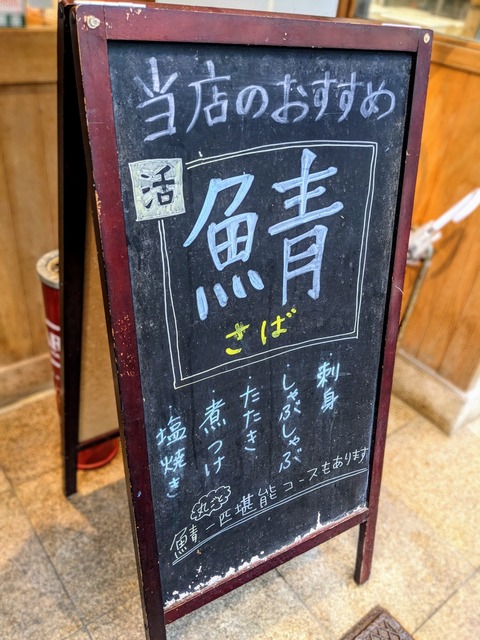 当店のおすすめ
活
鯖
さば
刺身
・しゃぶしゃぶ
・たたき
・煮つけ
塩焼き
丸ごと
鯖一匹堪能コースもあります